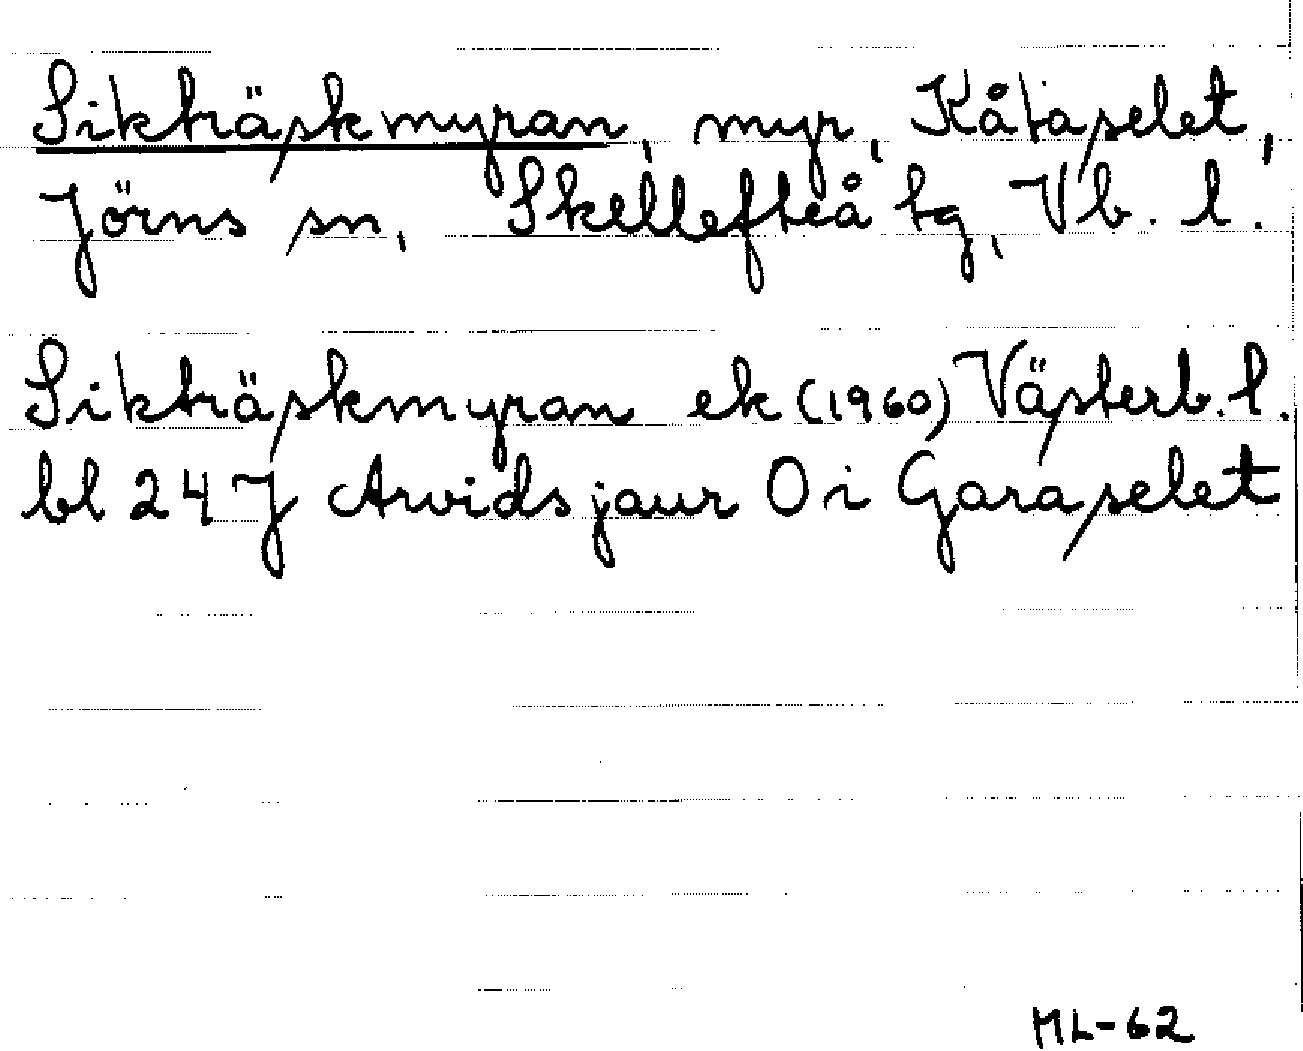 Sikträskmyran, myr, Kåtaselet,
Jörns sn, Skellefteå tg, Vb. l.
Sikträskmyran ek (1960) Västerb. l.
bl 24 J Arvidsjaur O i Garaselet
ML-62